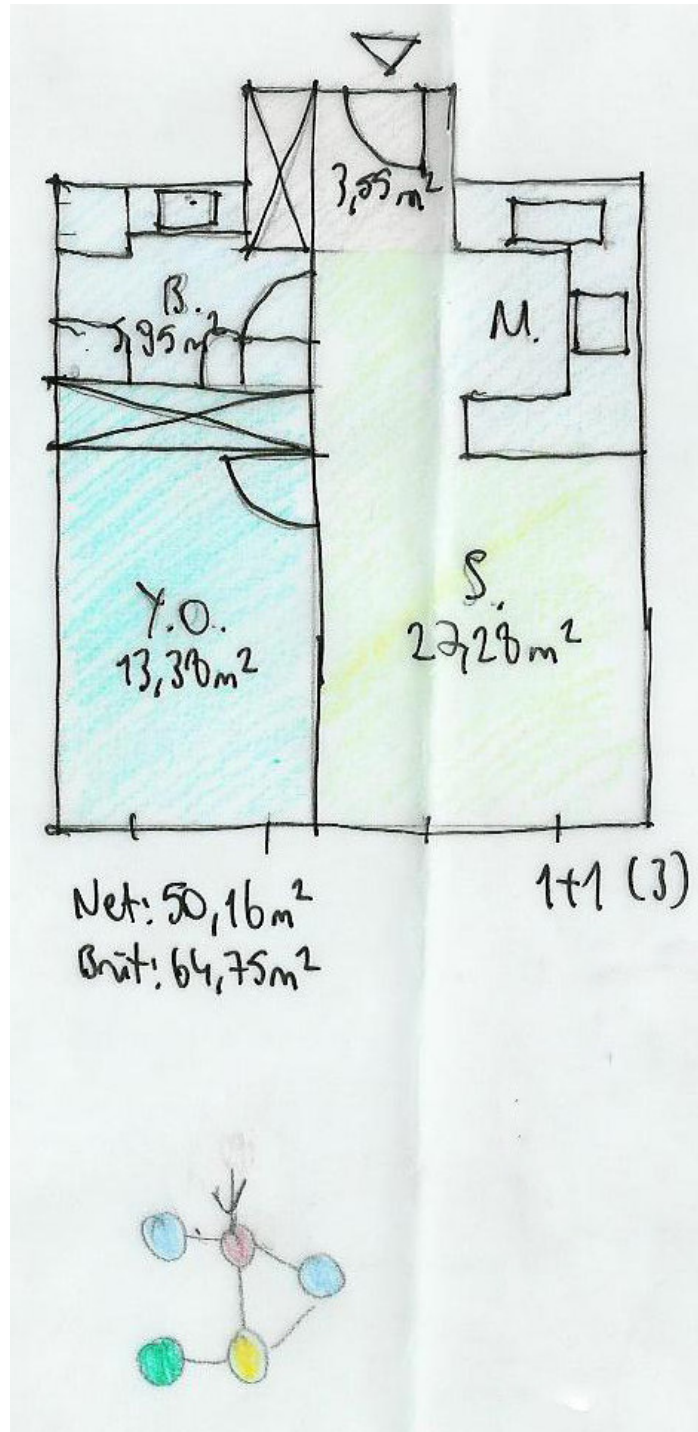 3,55 m²
B.
5,95 m²
M.
Y.O.
13,38 m²
S.
27,28 m²
Net: 50,16 m²
Brüt: 64,75 m²
1+1 (3)